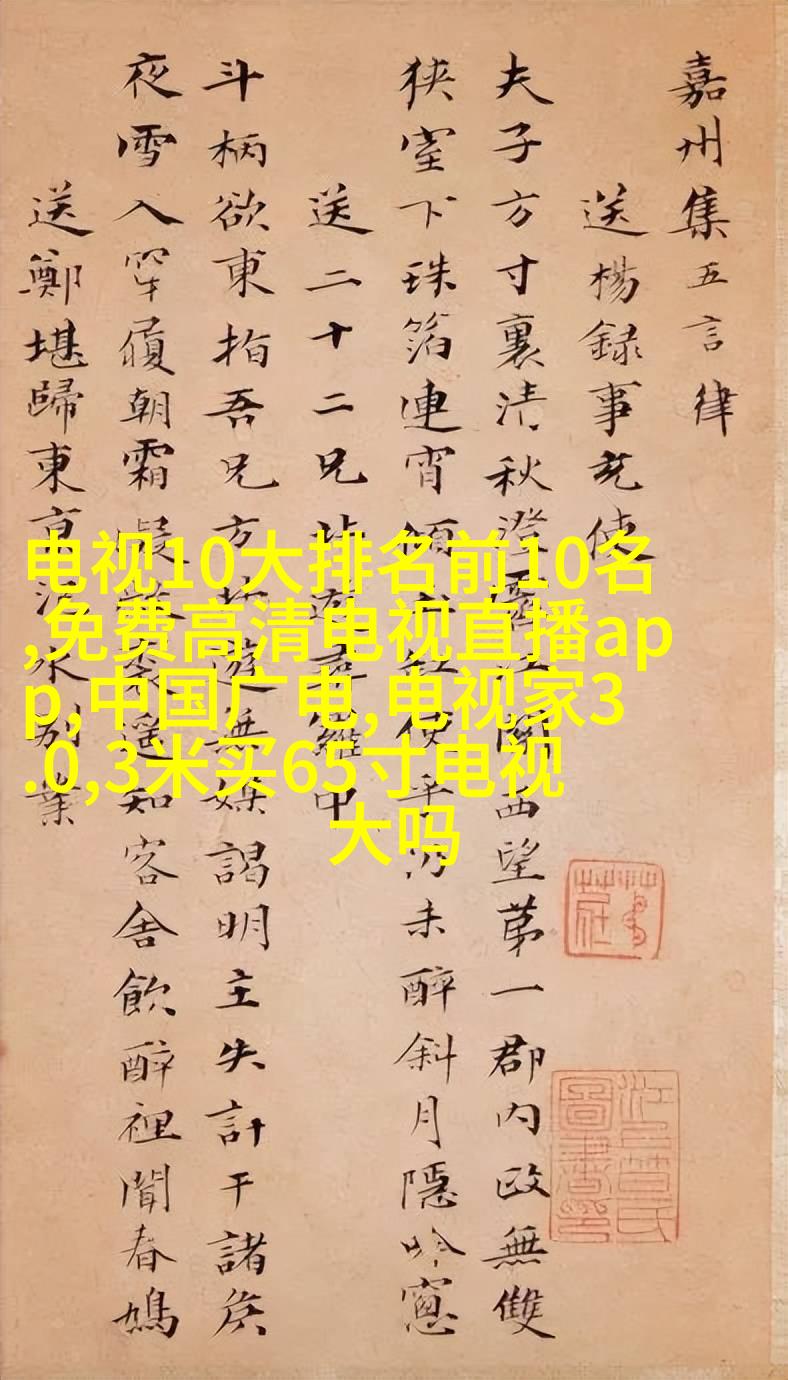 嘉州集五言律
送楊録事充使
夫子方寸裏清秋澄霽江關西望第一郡内政無雙
狭室下珠箔連宵傾缸便未醉斜月隱吟窓
送二十二兄北遊尋羅中
斗柄欲東指吾兄方北遊無媒謁明主失計干諸侯
夜雪入穿履朝霜凝裘遥知客舍飲醉裡聞春鳩
送鄭堪歸東京汜水別業
电视10大排名前10名
,免费高清电视直播ap
p,中国广电,电视家3
.0,3米买65寸电视
大吗